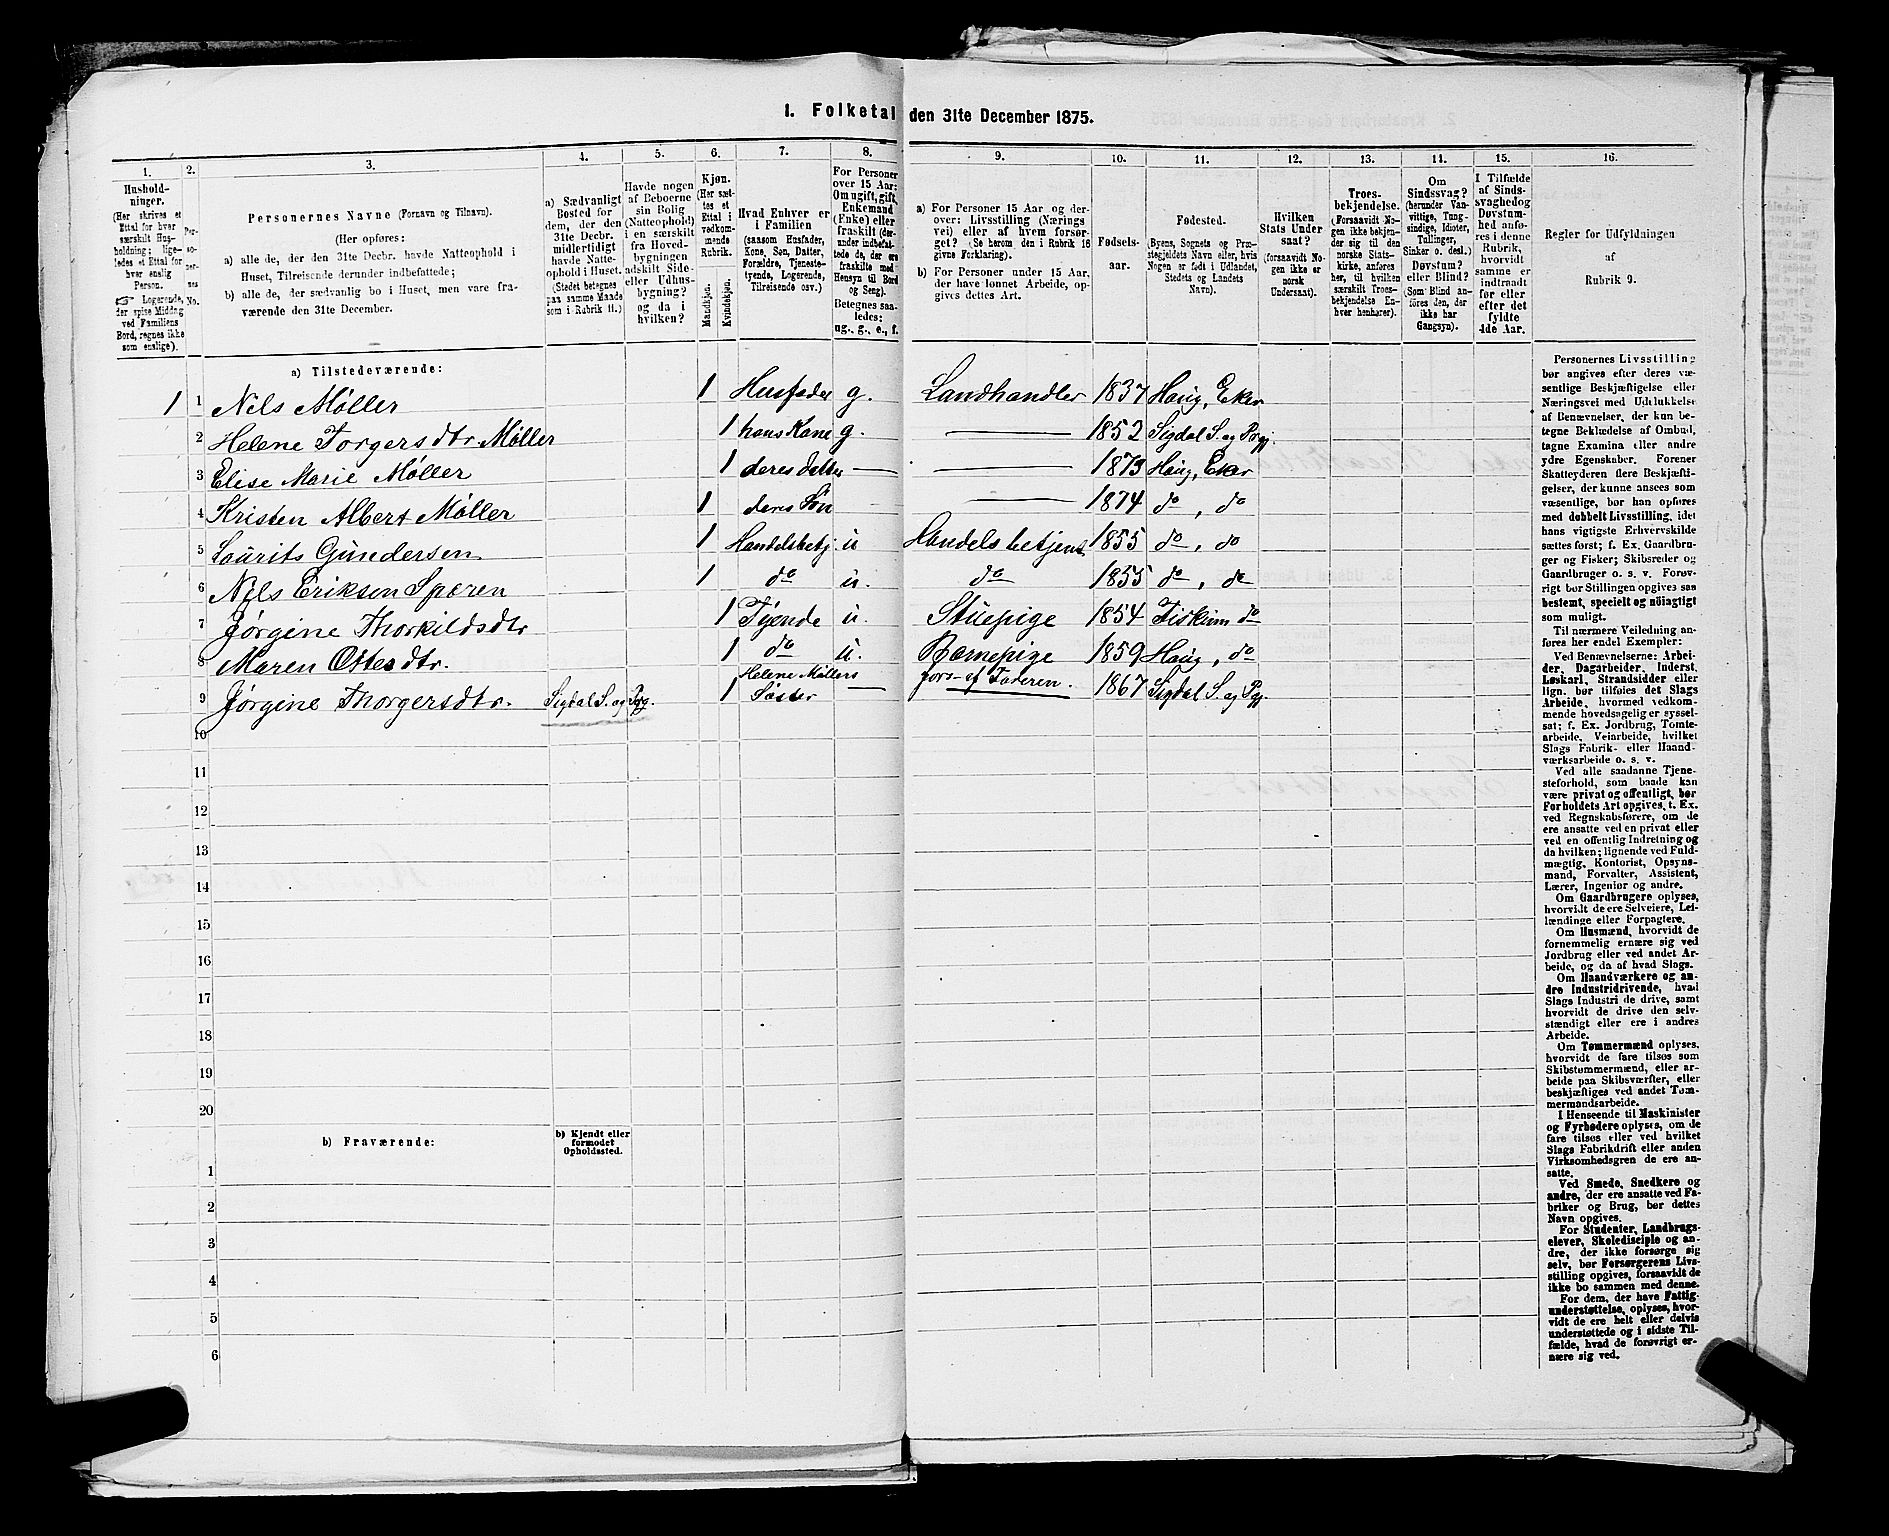 1. Folketal den 31te December 1875.
1. 2. 3. 4. 5. 6. 7. 8. 9. 10. 11. 12. 13. 14. 15. 16.
Hushold-
ninger.
(Her skrives et
Ettal for hver
særskilt Hus-
holdning; lige-
ledes et Ettal for
hver enslig
Person.
☞ Logerende,
der spise Middag
ved Familiens
Bord, regnes ikke
som enslige).
Per-
so-
ner-
nes
No.
Personernes Navne (Fornavn og Tilnavn).
(Her opføres:
a) alle de, der den 31te Decbr. havde Natteophold i
Huset, Tilreisende derunder indbefattede;
b) alle de, der sædvanlig bo i Huset, men vare fra-
værende den 31te December.
a) Sædvanligt
Bosted for
dem, der den
31te Decbr.
midlertidigt
havde Natte-
ophold i Huset.
(Stedet betegnes
paa samme Maade
som i Rubrik 11.)
Havde nogen
af Beboerne
sin Bolig
(Natteophold)
i en særskilt
fra Hoved-
bygningen
adskilt Side-
eller Udhus-
bygning?
og da i
hvilken?
Kjøn.
(Her sæt-
tes et
Ettal i
vedkom-
mende
Rubrik.
Mandkjøn.
Kvindekjøn.
Hvad Enhver er
i Familien
(saasom Husfader,
Kone, Søn, Datter,
Forældre, Tjeneste-
tyende, Logerende,
Tilreisende osv.)
For Personer
over 15 Aar:
Om ugift, gift,
Enkemand
(Enke) eller
fraskilt (der-
under indbefat-
tede de, der ere
fraskilte med
Hensyn til Bord
og Seng).
Betegnes saa-
ledes:
ug., g., e., f.
a) For Personer 15 Aar og der-
over: Livsstilling (Nærings
vei) eller af hvem forsør-
get? (Se herom den i Rubrik 16
givne Forklaring).
b) For Personer under 15 Aar,
der have lønnet Arbeide, op-
gives dettes Art.
Fødsels-
aar.
Fødested.
(Byens, Sognets og Præ-
stegjeldets Navn eller, hvis
Nogen er født i Udlandet,
Stedets og Landets
Navn).
Hvilken
Stats Under
saat?
(forsaavidt No-
gen ikke er
norsk
Undersaat).
Troes-
bekjendelse.
(Forsaavidt No-
gen ikke bekjen-
der sig til den
norske Stats-
kirke, anføres
her, til hvilken
særskilt Troes-
bekjendelse En-
hver henhører).
Om
Sindssvag?
(herunder Van-
vittige, Tung-
sindige, Idioter,
Tullinger,
Sinker o. desl.)
Døvstum?
eller Blind?
(Som Blind an-
føres den, der
ikke har
Gangsyn).
I Tilfælde
af Sinds-
svaghed og
Døvstum-
hed anfø-
res i denne
Rubrik,
hvorvidt
samme er
indtraadt
før eller
efter det
fyldte
4de Aar.
Regler for Udfyldningen
af
Rubrik 9.
a) Tilstedeværende:
1 1 Nils Møller 1 Husfader g. Landhandler 1837 Haug, Eker
2 Helene Torgersdtr. Møller 1 hans Kone g. — 1852 Sigdal S. og Prgj.
3 Elise Marie Møller 1 deres Datter — — 1873 Haug, Eker
4 Kristen Albert Møller 1 deres Søn — 1874 do, do
5 Laurits Gundersen 1 Handelsbetj. u Handelsbetjent 1855 do, do
6 Nils Eriksen Spæren 1 do u. do 1855 do, do
7 Jørgine Thorkildsdtr 1 Tyende u. Stuepige 1854 Fiskum do
8 Maren Ottesdtr. 1 do u. Barnepige 1859 Haug, do
9 Jørgine Thorgersdtr. Sigdal S. og Prg. 1 Helene Møllers Søster — fors. af Faderen. 1867 Sigdal S. og Pgj
10
11
12
13
14
15
16
17
18
19
20
b) Fraværende:
b) Kjendt eller
formodet
Opholdssted.
1
2
3
4
5
6
Personernes Livsstilling
bør angives efter deres væ-
sentlige Beskjæftigelse eller
Næringsvei med Udelukkelse
af Benævnelser, der kun be-
tegne Beklædelse af Ombud,
tagne Examina eller andre
ydre Egenskaber. Forener
Skatteyderen flere Beskjæfti-
gelser, der kunne ansees som
væsentlige, bør han opføres
med dobbelt Livsstilling, idet
hans vigtigste Erhvervskilde
sættes først; f. Ex. Gaardbru-
ger og Fisker; Skibsreder og
Gaardbruger o. s. v. Forøv-
rigt bør Stillingen opgives saa
bestemt, specielt og nöiagtigt
som muligt.
Til nærmere Veiledning an-
føres her endel Exempler:
Ved Benævnelserne: Arbei-
der, Dagarbeider, Inderst,
Løskarl, Strandsidder eller
lign. bør tilføies det Slags
Arbeide, hvormed vedkom-
mende hovedsagelig er syssel-
sat; f. Ex. Jordbrug, Tomte-
arbeide, Veiarbeide, hvilket
Slags Fabrik- eller Haand-
værksarbeide o. s. v.
Ved alle saadanne Tjene-
steforhold, som baade kan
være privat og offentligt, bør
Forholdets Art opgives, t. Ex.
ved Regnskabsførere, om de
ere ansatte ved en privat eller
ved en offentlig Indretning og
da hvilken; lignende ved Fuld-
mægtig, Kontorist, Opsyns-
mand, Forvalter, Assistent,
Lærer, Ingeniør og andre.
Om Gaardbrugere oplyses,
hvorvidt de ere Selveiere, Lei-
lændinge eller Forpagtere.
Om Husmænd, hvorvidt de
fornemmelig ernære sig ved
Jordbrug eller ved andet Ar-
beide, og da af hvad Slags.
Om Haandværkere og an-
dre Industridrivende, hvad
Slags Industri de drive, samt
hvorvidt de drive den selv-
stændigt eller ere i andres
Arbeide.
Om Tømmermænd oplyses,
hvorvidt de fare tilsøs som
Skibstømmermænd, eller ar-
beide paa Skibsværfter, eller
beskjæftiges ved andet Tøm-
mermandsarbeide.
I Henseende til Maskinister
og Fyrbødere oplyses, om de
fare tilsøs eller ved hvilket
Slags Fabrikdrift eller anden
Virksomhedsgren de ere an-
satte.
Ved Smede, Snedkere og
andre, der ere ansatte ved Fa-
briker og Brug, bør dettes
Navn opgives.
For Studenter, Landbrugs-
elever, Skoledisciple og an-
dre, der ikke forsørge sig
selv, bør Forsørgerens Livs-
stilling opgives, forsaavidt de
ikke bo sammen med denne.
For dem, der have Fattig-
understøttelse, oplyses, hvor-
vidt de ere helt eller delvis
understøttede og i sidste Til-
fælde, hvad de forøvrigt er-
nære sig ved.